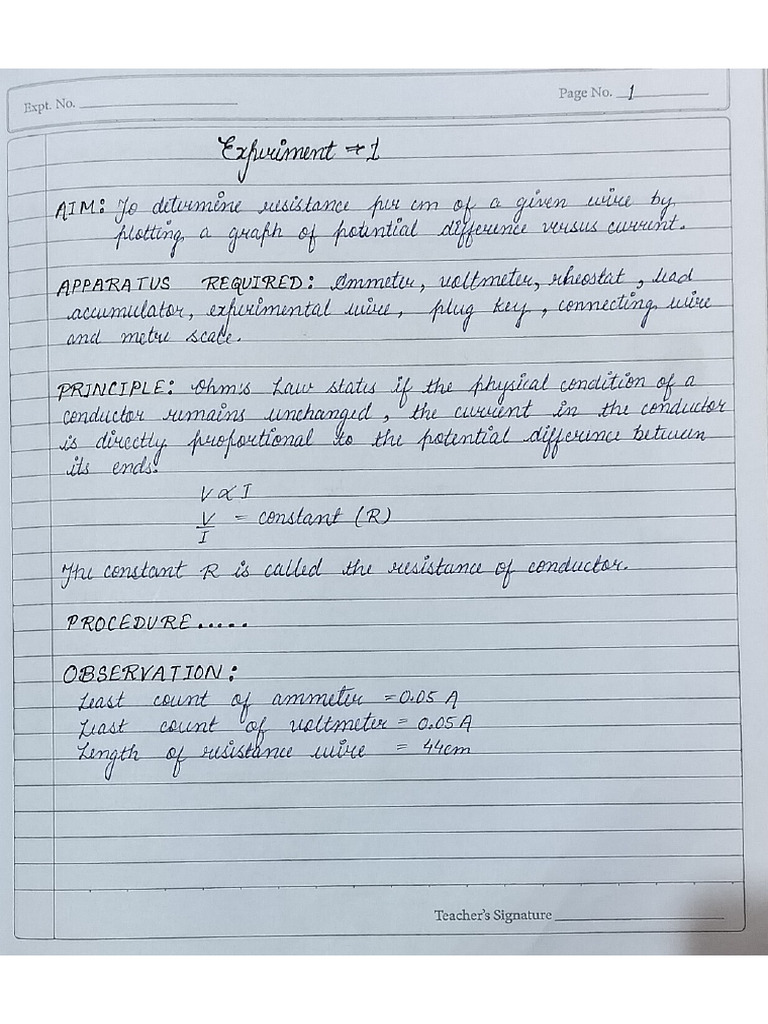 Expt. No.
Page No. 1
Experiment → 1
AIM: To determine resistance per cm of a given wire by
plotting a graph of potential difference versus current.
APPARATUS REQUIRED: Ammeter, voltmeter, rheostat, lead
accumulator, experimental wire, plug key, connecting wire
and metre scale.
PRINCIPLE: Ohm's Law states if the physical condition of a
conductor remains unchanged, the current in the conductor
is directly proportional to the potential difference between
its ends.
V ∝ I
V
— = constant (R)
I
The constant R is called the resistance of conductor.
PROCEDURE.....
OBSERVATION:
Least count of ammeter = 0.05 A
Least count of voltmeter = 0.05 A
Length of resistance wire = 44cm
Teacher's Signature